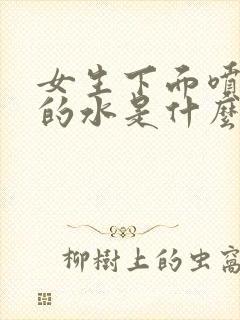 女生下而噴
的水是什麼
柳樹上的虫窩